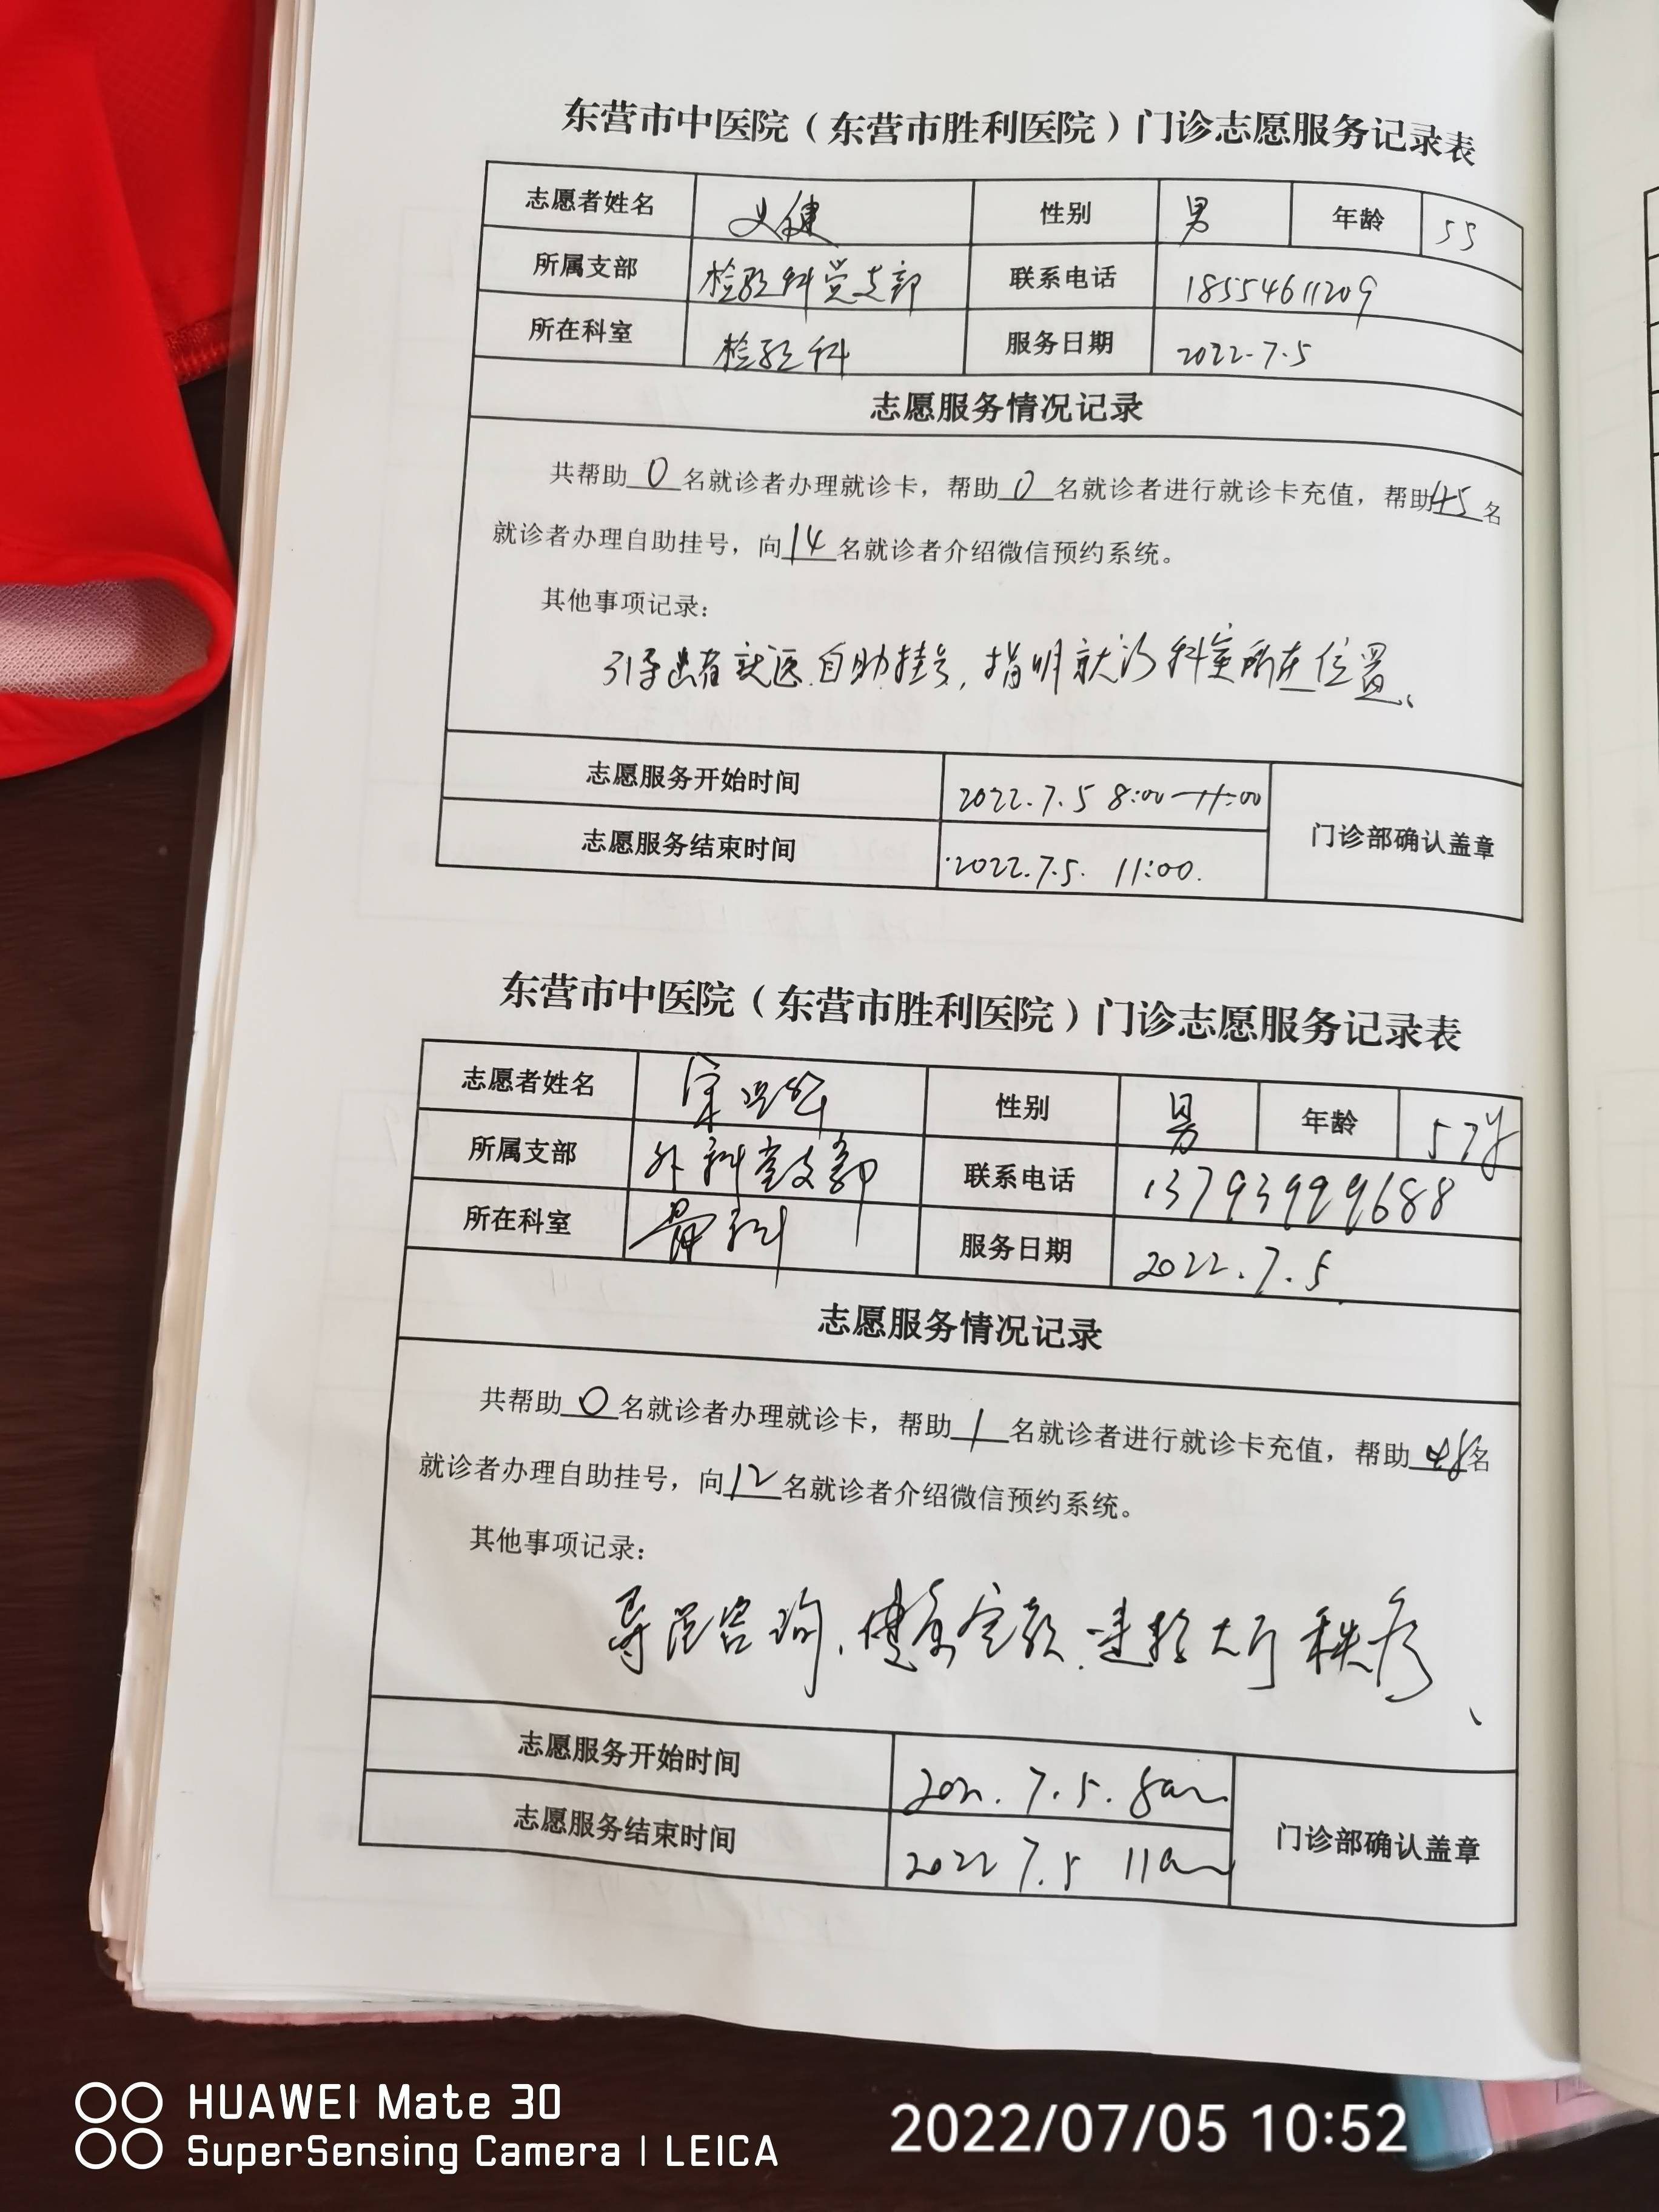 东营市中医院（东营市胜利医院）门诊志愿服务记录表
志愿者姓名 健 性别 男 年龄 55
所属支部 检验科党支部 联系电话 18554611209
所在科室 检验科 服务日期 2022.7.5
志愿服务情况记录
共帮助0名就诊者办理就诊卡，帮助0名就诊者进行就诊卡充值，帮助45名
就诊者办理自助挂号，向14名就诊者介绍微信预约系统。
其他事项记录：
引导患者就医.自助挂号，指明就诊科室所在位置、
志愿服务开始时间 2022.7.5 8:00-11:00
门诊部确认盖章
志愿服务结束时间 2022.7.5. 11:00.
东营市中医院（东营市胜利医院）门诊志愿服务记录表
志愿者姓名 宋 性别 男 年龄 57岁
所属支部 外科党支部 联系电话 13793999688
所在科室 骨科 服务日期 2022.7.5
志愿服务情况记录
共帮助0名就诊者办理就诊卡，帮助1名就诊者进行就诊卡充值，帮助名
就诊者办理自助挂号，向12名就诊者介绍微信预约系统。
其他事项记录：
导医咨询.健康宣教.大厅秩序、
志愿服务开始时间 2022.7.5.8am
门诊部确认盖章
志愿服务结束时间 2022 7.5 11am
HUAWEI Mate 30
SuperSensing Camera | LEICA
2022/07/05 10:52